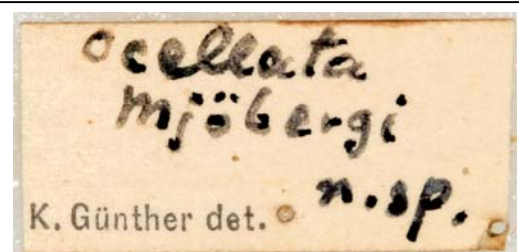 ocellata
mjöbergi
n.sp.
K. Günther det.